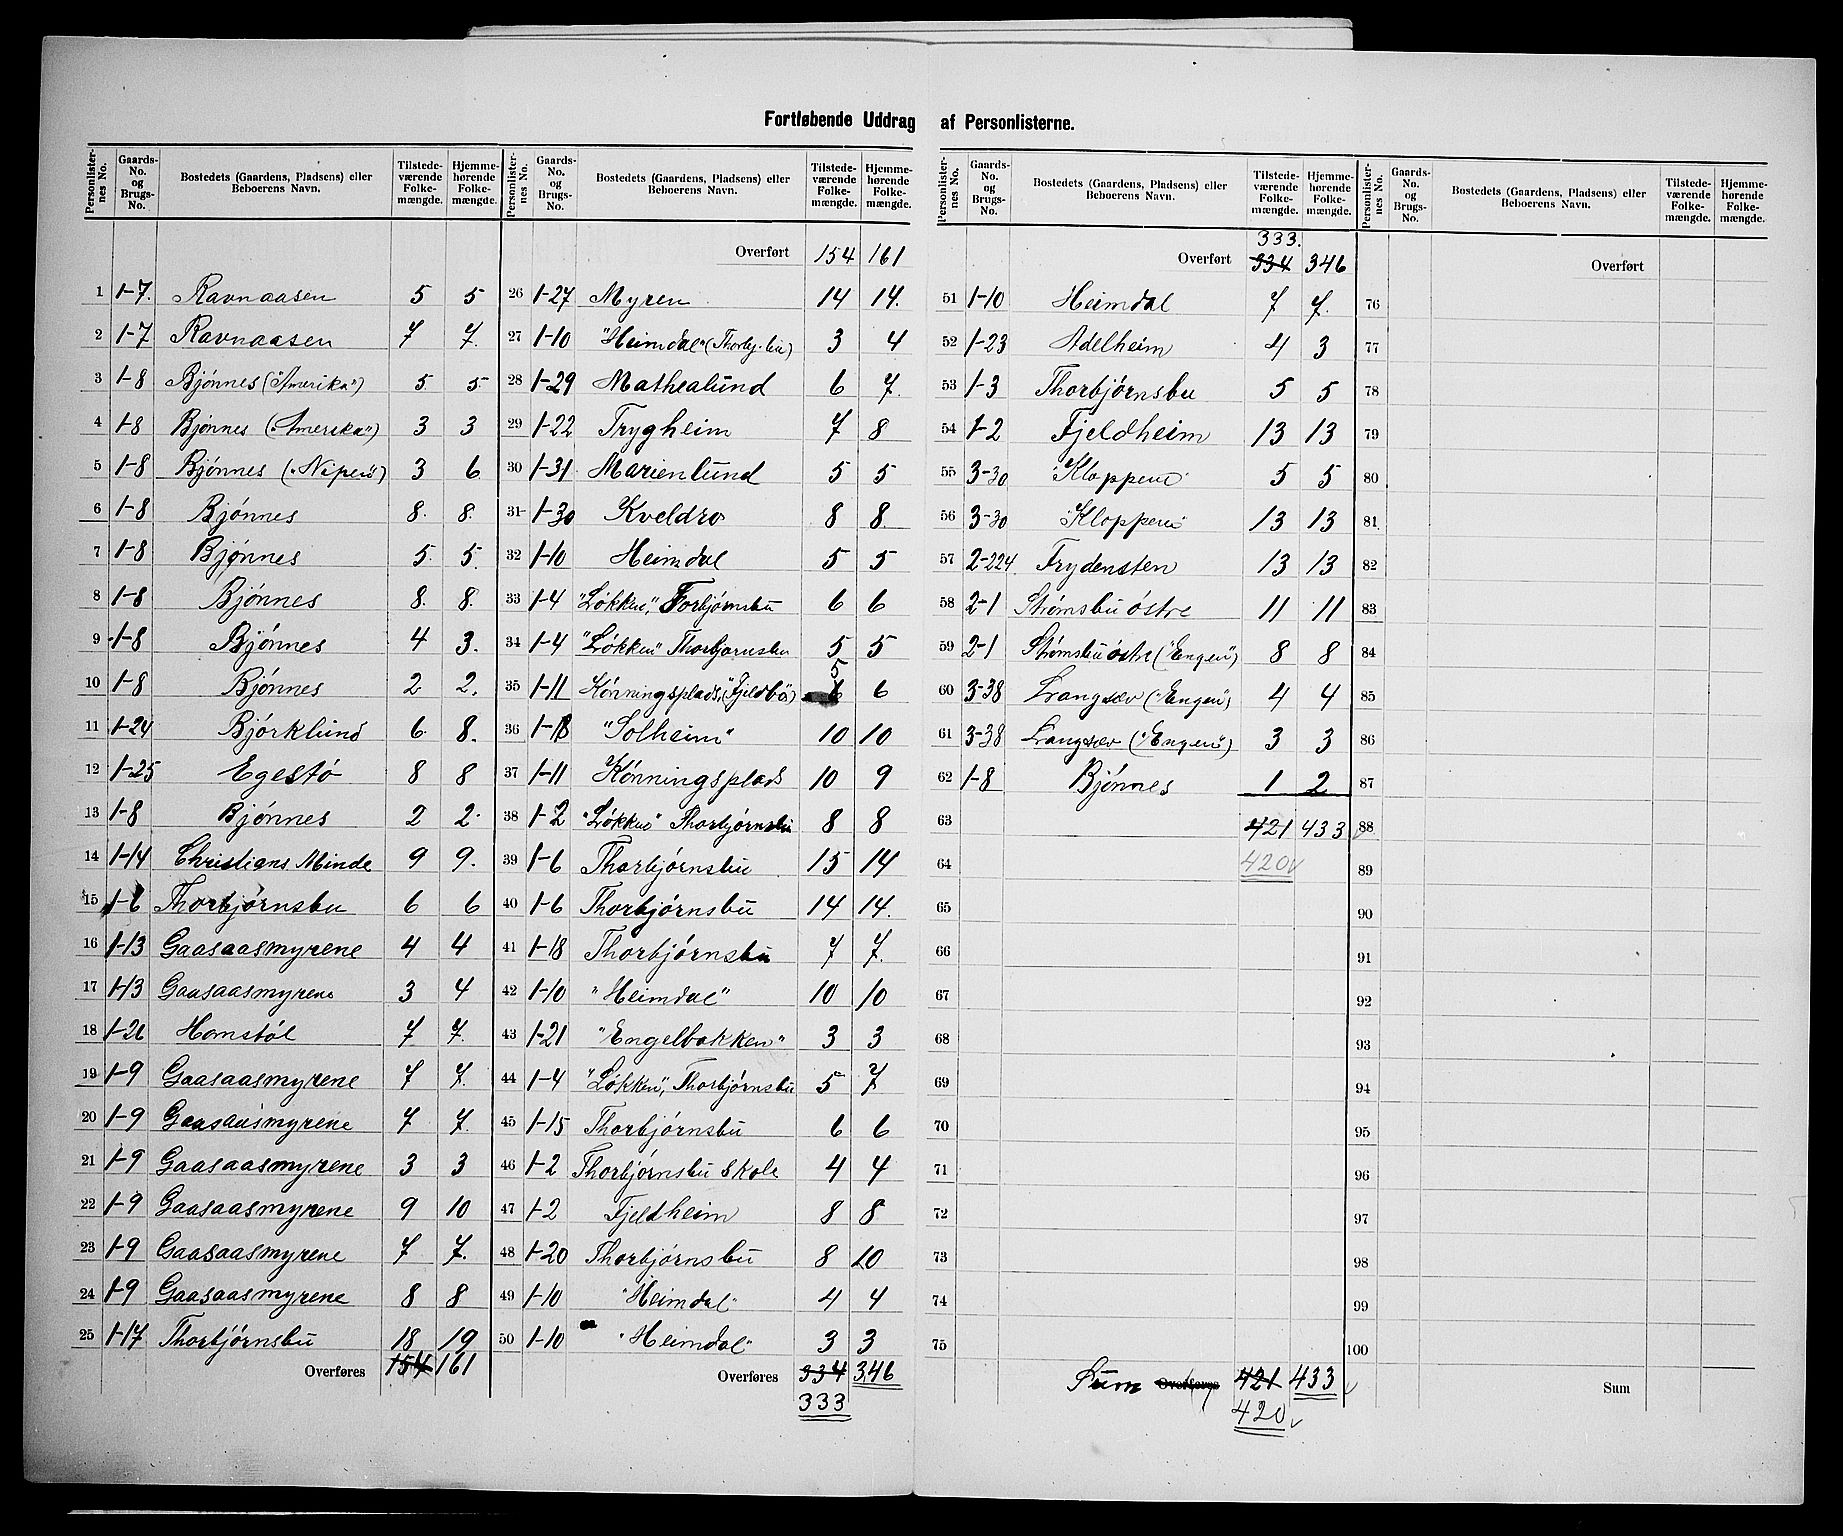 Fortløbende Uddrag af Personlisterne.
Personlister-nes No. | Gaards-No. og Brugs-No. | Bostedets (Gaardens, Pladsens) eller Beboerens Navn. | Tilstede-værende Folke-mængde. | Hjemme-hørende Folke-mængde.
1 1-7. Ravnaasen 5 5
2 1-7 Ravnaasen 7 7.
3 1-8 Bjønnes ("Amerika") 5 5
4 1-8 Bjønnes ("Amerika") 3 3
5 1-8 Bjønnes ("Nipen") 3 6
6 1-8 Bjønnes 8. 8.
7 1-8 Bjønnes 5. 5.
8 1-8 Bjønnes 8. 8.
9 1-8 Bjønnes 4 3.
10 1-8 Bjønnes 2 2.
11 1-24 Bjørklund 6. 8.
12 1-25 Egestø 8 8
13 1-8 Bjønnes 2 2.
14 1-14 Christians Minde 9 9.
15 1-6 Thorbjørnsbu 6 6
16 1-13 Gaasaasmyrene 4 4
17 1-13 Gaasaasmyrene 3 4
18 1-26 Homstøl 7 7.
19 1-9 Gaasaasmyrene 7 7.
20 1-9 Gaasaasmyrene 7 7.
21 1-9 Gaasaasmyrene 3 3
22 1-9 Gaasaasmyrene 9 10
23 1-9 Gaasaasmyrene 7 7.
24 1-9 Gaasaasmyrene 8 8
25 1-17 Thorbjørnsbu 18 19
Overføres 154 161
Personlister-nes No. | Gaards-No. og Brugs-No. | Bostedets (Gaardens, Pladsens) eller Beboerens Navn. | Tilstede-værende Folke-mængde. | Hjemme-hørende Folke-mængde.
Overført 154 161
26 1-27 Myren 14 14.
27 1-10 "Heimdal" (Thorbj.bu) 3 4
28 1-29 Mathealund 6 7.
29 1-22 Trygheim 7 8
30 1-31 Marienlund 5 5
31 1-30 Kveldro 8 8
32 1-10 Heimdal 5 5
33 1-4 "Løkken", Torbjørnsbu 6 6
34 1-4 "Løkken" Thorbjørnsbu 5 5
35 1-11 Kønningsplads, ("Fjeldbo") 6 5 6
36 1-18 "Solheim" 10 10
37 1-11 Kønningsplads 10 9
38 1-2 "Løkken" Thorbjørnsbu 8 8
39 1-6 Thorbjørnsbu 15 14
40 1-6 Thorbjørnsbu 14 14.
41 1-18 Thorbjørnsbu 7 7.
42 1-10 "Heimdal" 10 10
43 1-21 "Engelbakken" 3 3
44 1-4 "Løkken", Thorbjørnsbu 5 7
45 1-15 Thorbjørnsbu 6 6
46 1-2 Thorbjørnsbu Skole 4 4
47 1-2 Fjeldheim 8 8
48 1-20 Thorbjørnsbu 8 10
49 1-10 "Heimdal" 4 4
50 1-10 "Heimdal" 3 3
Overføres 334 346
333
Personlister-nes No. | Gaards-No. og Brugs-No. | Bostedets (Gaardens, Pladsens) eller Beboerens Navn. | Tilstede-værende Folke-mængde. | Hjemme-hørende Folke-mængde.
333.
Overført 334 346
51 1-10 Heimdal 7 7.
52 1-23 Adelheim 4 3
53 1-3 Thorbjørnsbu 5 5
54 1-2 Fjeldheim 13 13
55 3-30 "Kloppene" 5 5
56 3-30 "Kloppene" 13 13
57 2-224. Frydensten 13 13
58 2-1 Strømsbu østre 11 11
59 2-1 Strømsbu østre ("Engen") 8 8
60 3-38 Langsæv ("Engen") 4 4
61 3-38 Langsæv ("Engen") 3 3
62 1-8 Bjønnes 1 2
63 421 433
64 420
65
66
67
68
69
70
71
72
73
74
75
Sum Overføres 421 433
420
Personlister-nes No. | Gaards-No. og Brugs-No. | Bostedets (Gaardens, Pladsens) eller Beboerens Navn. | Tilstede-værende Folke-mængde. | Hjemme-hørende Folke-mængde.
Overført
76
77
78
79
80
81
82
83
84
85
86
87
88
89
90
91
92
93
94
95
96
97
98
99
100
Sum